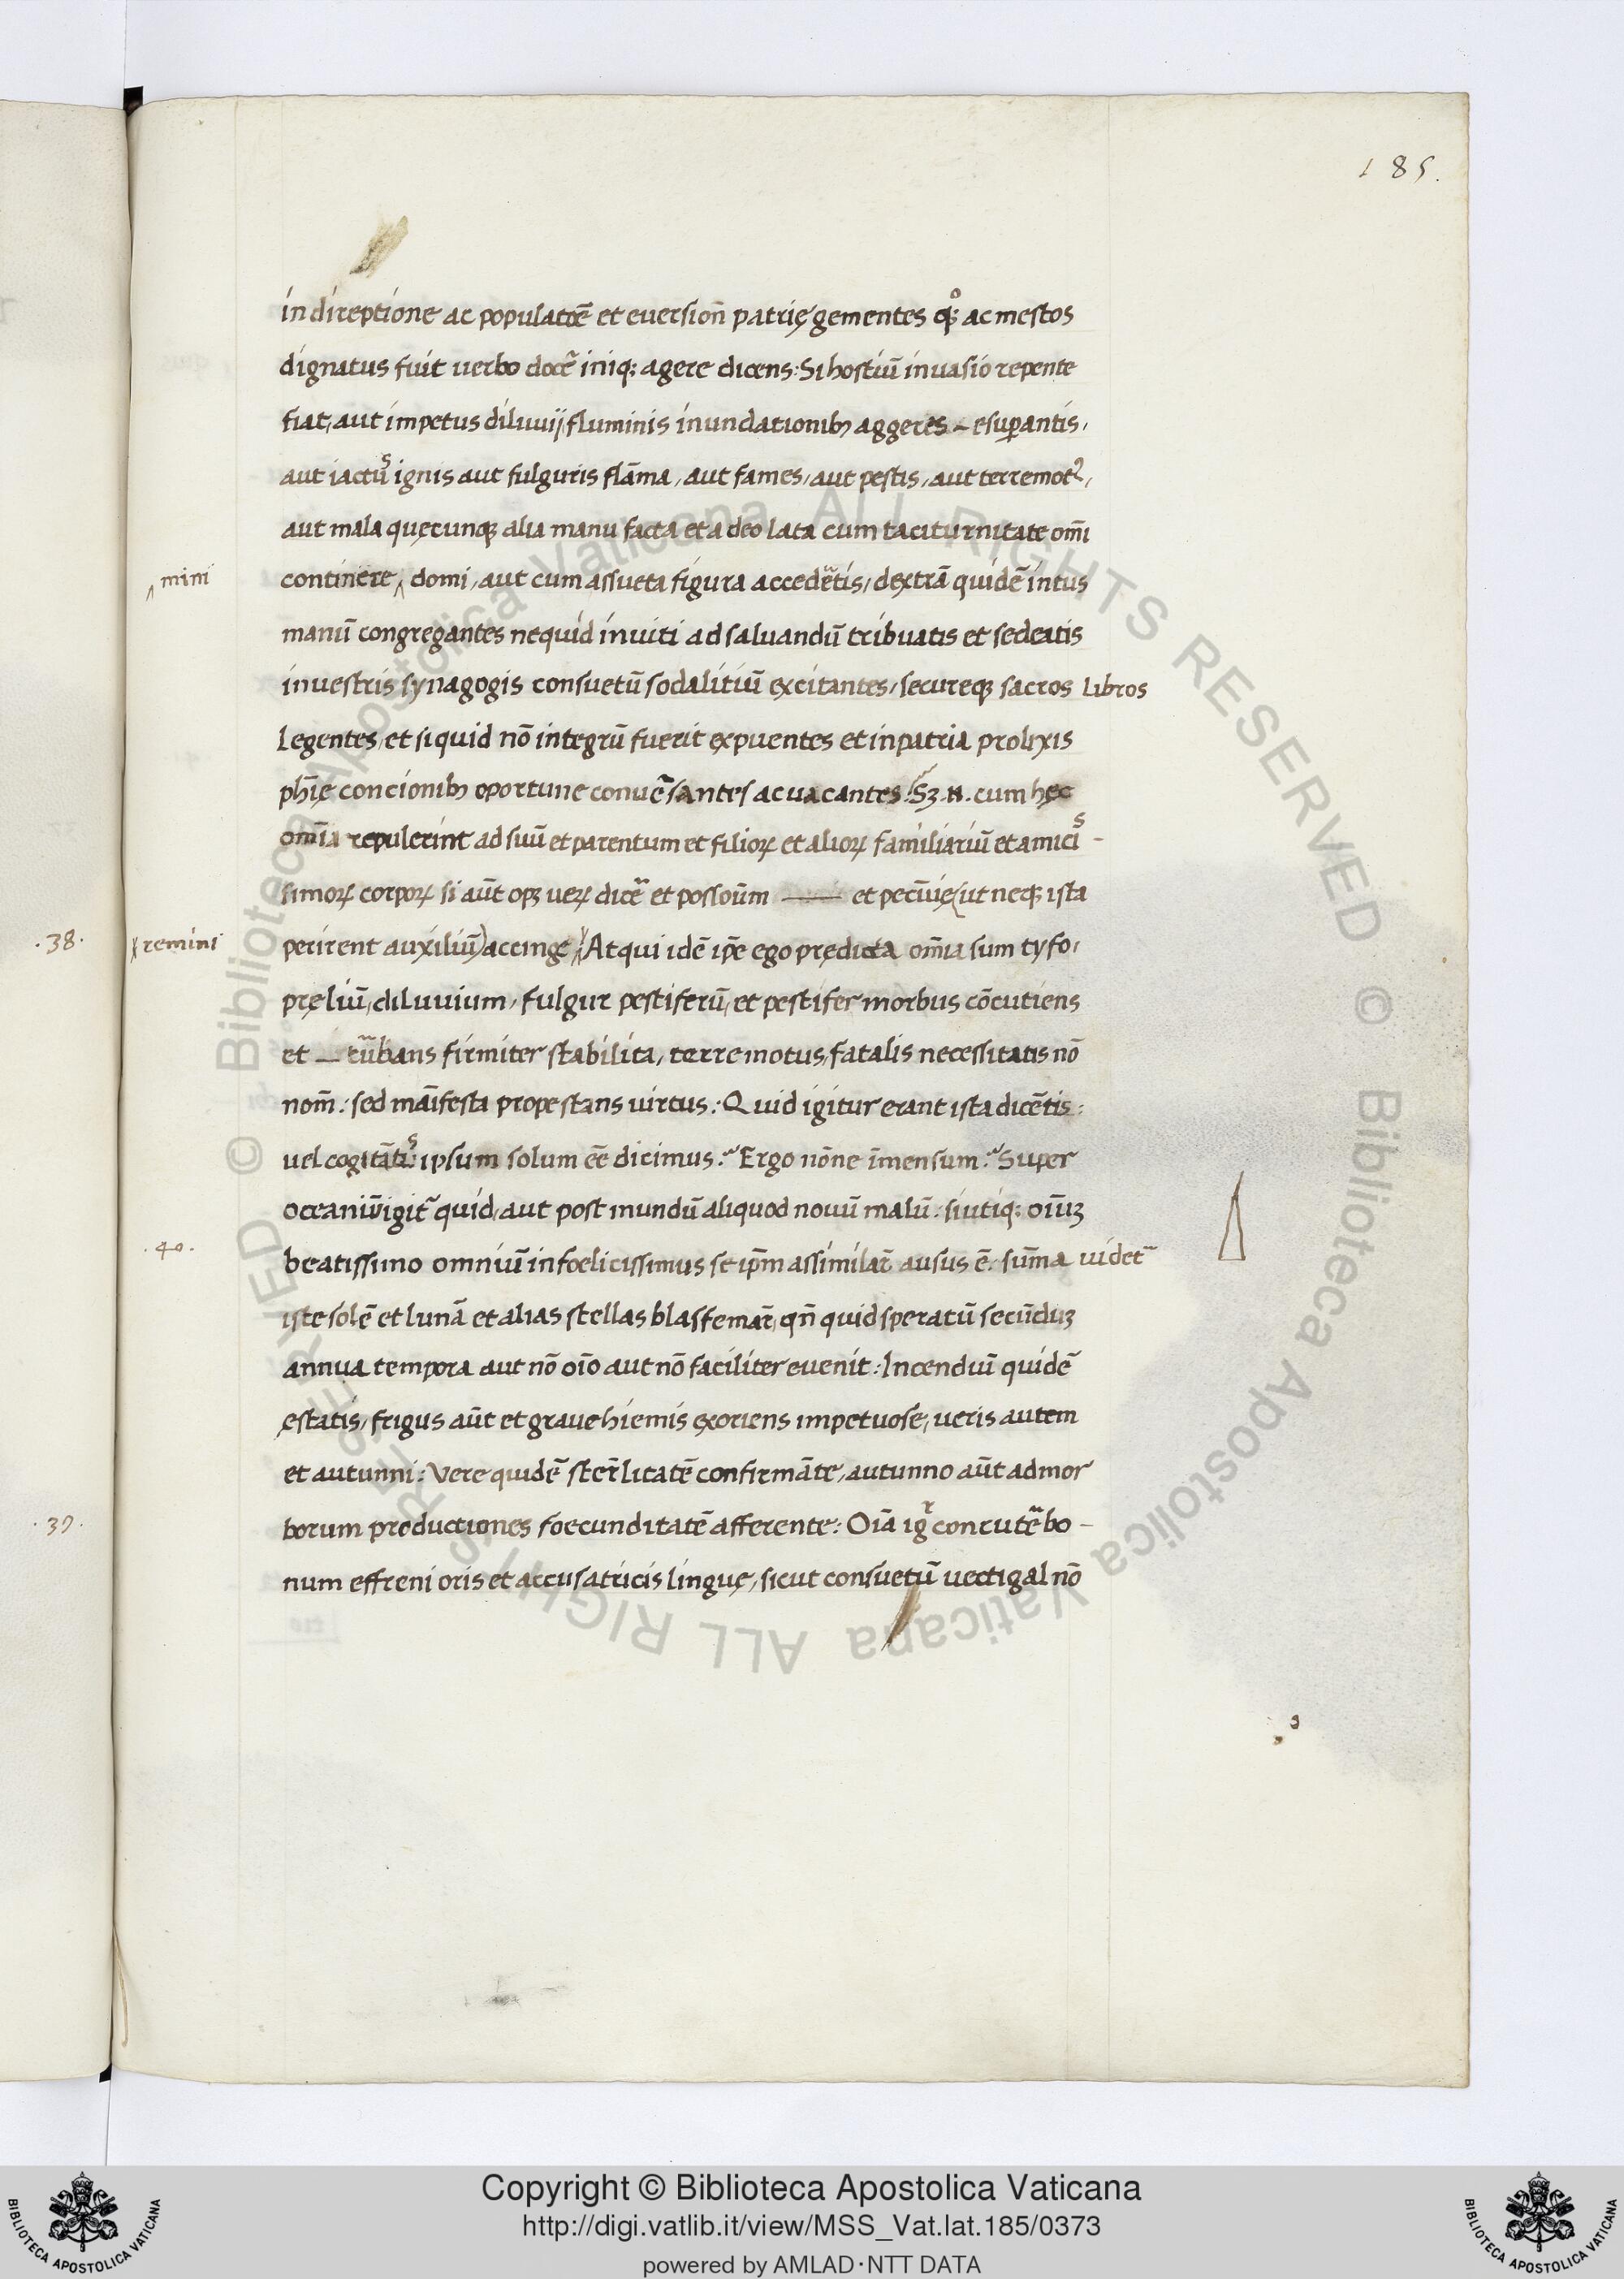 185.
in direptione ac populatōe et eversioñ patrię gementes q̊ꝫ ac mestos
dignatus fuit verbo docẽ iniq; agere dicens: Si hostiū invasio repente
fiat, aut impetus diluvij, fluminis inundationibꝫ aggeres – esuꝑantis,
aut iactus ignis aut fulguris flāma, aut fames, aut pestis, aut terremotꝰ,
aut mala quęcunqꝫ alia manu facta et a deo lata cum taciturnitate om̄i
mini
continere ‸ domi, aut cum assueta figura accedētis, dextrā quidē intus
manū congregantes nequid inviti ad salvandū tribuatis et sedeatis
in vestris synagogis consuetū sodalitiū excitantes, secureqꝫ sacros libros
legentes, et si quid nō integrū fuerit expuentes et in patria prolixis
ph̄ię concionibꝫ oportune convẽsantes ac vacantes. Sꝫ .n. cum hęc
om̄ia repulerint ad suū et parentum et filioꝝ et alioꝝ familiariū et amicis–
simoꝝ corpoꝝ si aūt opꝫ veꝝ dicẽ et possoūm –– et pecūię (ut neqꝫ ista
.38.
remini
perirent auxiliū) accinge At qui idē ip̄e ego prędicta om̄ia sum tyfo,
pręliū, diluvium, fulgur pestiferū, et pestifer morbus cōcutiens
et – tũbans firmiter stabilita, terremotus, fatalis necessitatis nō
nom̄: sed māifesta propestans virtus: Quid igitur erant ista dicētis:
vel cogitātis: ipsum solum eē dicimus: Ergo nōne īmensum: Super
oceaniū igit̃ quid, aut post mundū aliquod novū malū: siutiq: oīuꝫ
.40.
beatissimo omniū infoelicissimus se ip̄m assimilar̄ ausus ē: sūma videt̃
iste solē et lunā et alias stellas blasfemar̄, qn̄ quid speratū secūduꝫ
annua tempora aut nō oīo aut nō faciliter evenit: Incendiū quidē
ęstatis, frigus aūt et grave hiemis exoriens impetuose, veris autem
et autunni: Vere quidē ster̄litatē confirmāte, autunno aūt ad mor
.39.
borum productiones foecunditatē afferente: Oīa igr̃ concutẽ bo–
num effreni oris et accusatricis linguę, sicut consuetū vectigal nō
Copyright © Biblioteca Apostolica Vaticana
http://digi.vatlib.it/view/MSS_Vat.lat.185/0373
powered by AMLAD·NTT DATA
BIBLIOTECA APOSTOLICA VATICANA
BIBLIOTECA APOSTOLICA VATICANA
© Biblioteca Apostolica Vaticana ALL RIGHTS RESERVED © Biblioteca Apostolica Vaticana ALL RIGHTS RESERVED